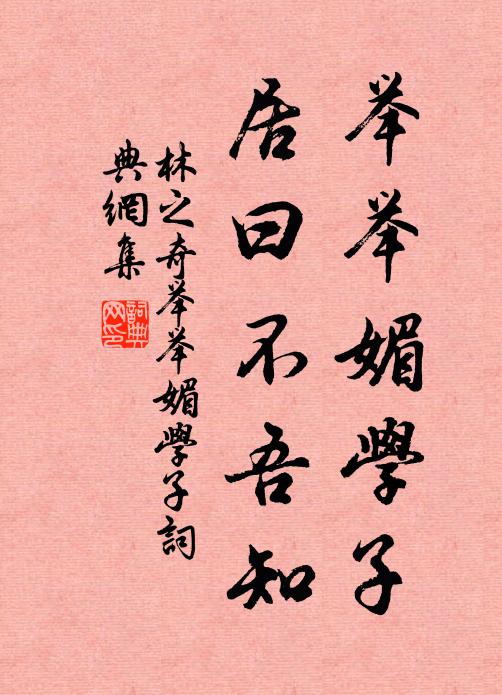 举举媚學子
居曰不吾知
林之奇举举媚學子詞
典網集
詞典网印